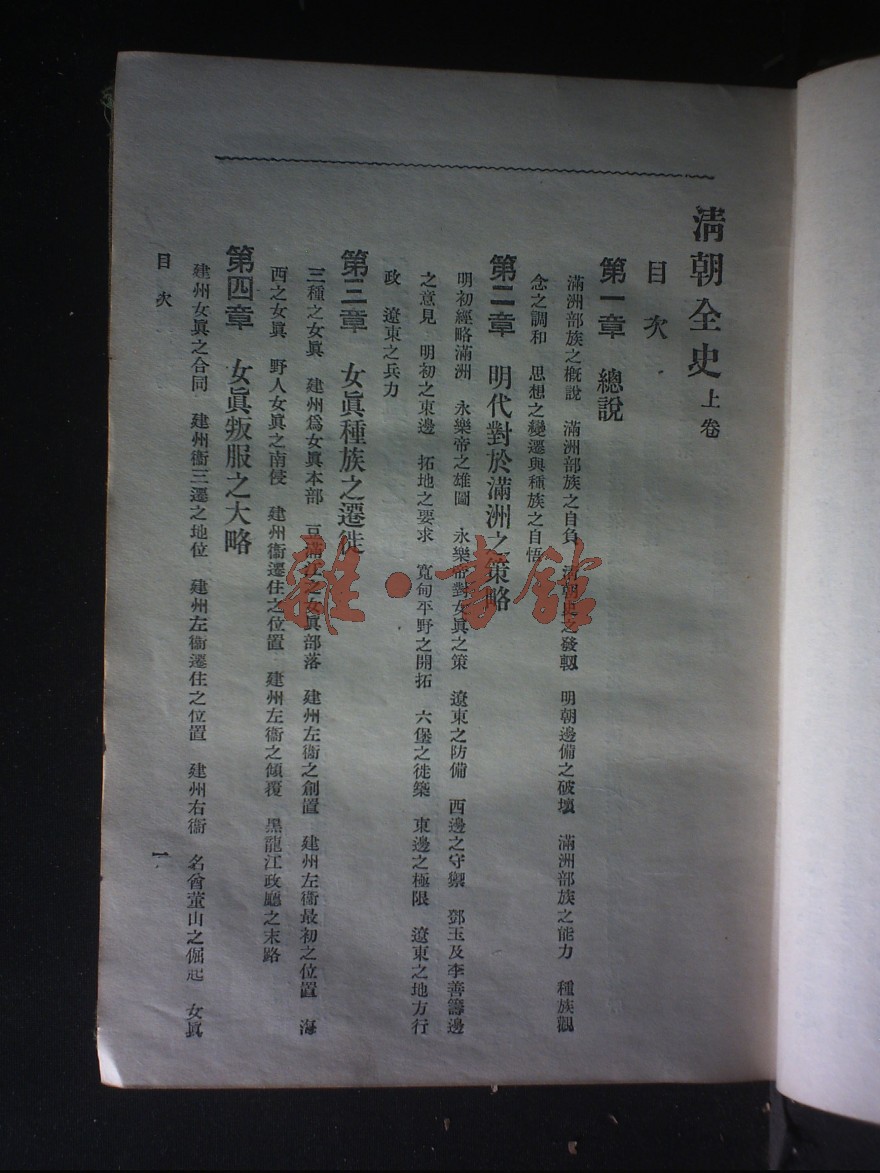 清朝全史 上卷
目次
第一章 總說
滿洲部族之概說 滿洲部族之自負 清朝史之發軔 明朝邊備之破壞 滿洲部族之能力 種族觀
念之調和 思想之變遷與種族之自悟
第二章 明代對於滿洲之策略
明初經略滿洲 永樂帝之雄圖 永樂帝對女眞之策 遼東之防備 西邊之守禦 鄧玉及李善籌邊
之意見 明初之東邊 拓地之要求 寬甸平野之開拓 六堡之徙築 東邊之極限 遼東之地方行
政 遼東之兵力
第三章 女眞種族之遷徙
三種之女眞 建州爲女眞本部 豆滿江之女眞部落 建州左衞之創置 建州左衞最初之位置 海
西之女眞 野人女眞之南侵 建州衞遷住之位置 建州左衞之傾覆 黑龍江政廳之末路
第四章 女眞叛服之大略
建州女眞之合同 建州衞三遷之地位 建州左衞遷住之位置 建州右衞 名酋董山之倔起 女眞
目次
一
雜·書館